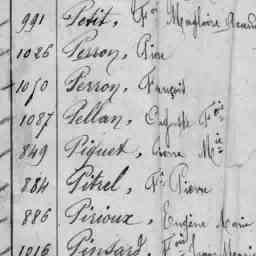 991 Petit, Fois Magloire
1026 Perron, Pierre
1050 Perron, François
1087 Pellan, Auguste Fois
849 Piquet, Pierre Mie
884 Pitrel, Fs Pierre
886 Pirioux, Eugène Marie
1016 Pinsard, Fois